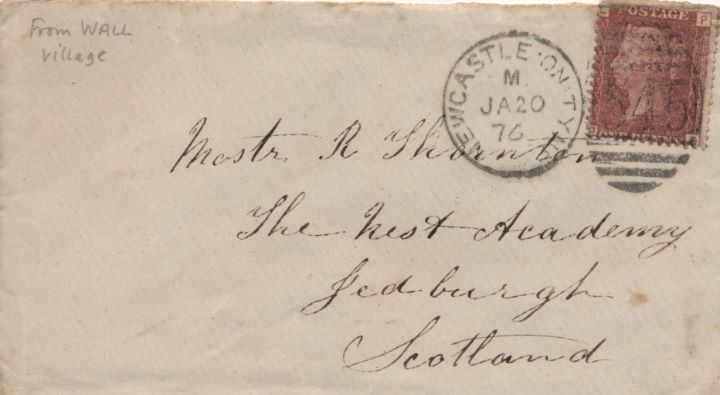 From WALL
village
NEWCASTLE-ON-TYNE
M
JA20
76
POSTAGE
P
545
Mastr R Thornton
The Nest Academy
Jedburgh
Scotland